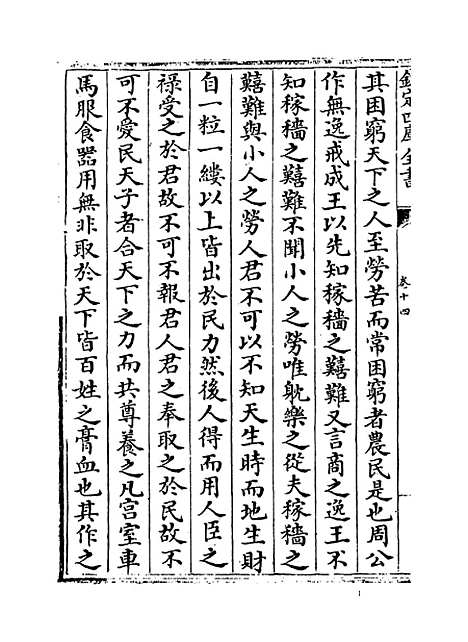 欽定四庫全書
卷十四
其困窮天下之人至勞苦而常困窮者農民是也周公
作無逸戒成王以先知稼穡之囏難又言商之逸王不
知稼穡之囏難不聞小人之勞唯躭樂之從夫稼穡之
囏難與小人之勞人君不可以不知天生時而地生財
自一粒一縷以上皆出於民力然後人得而用人臣之
祿受之於君故不可不報君人君之奉取之於民故不
可不愛民天子者合天下之力而共尊養之凡宫室車
馬服食器用無非取於天下皆百姓之膏血也其作之